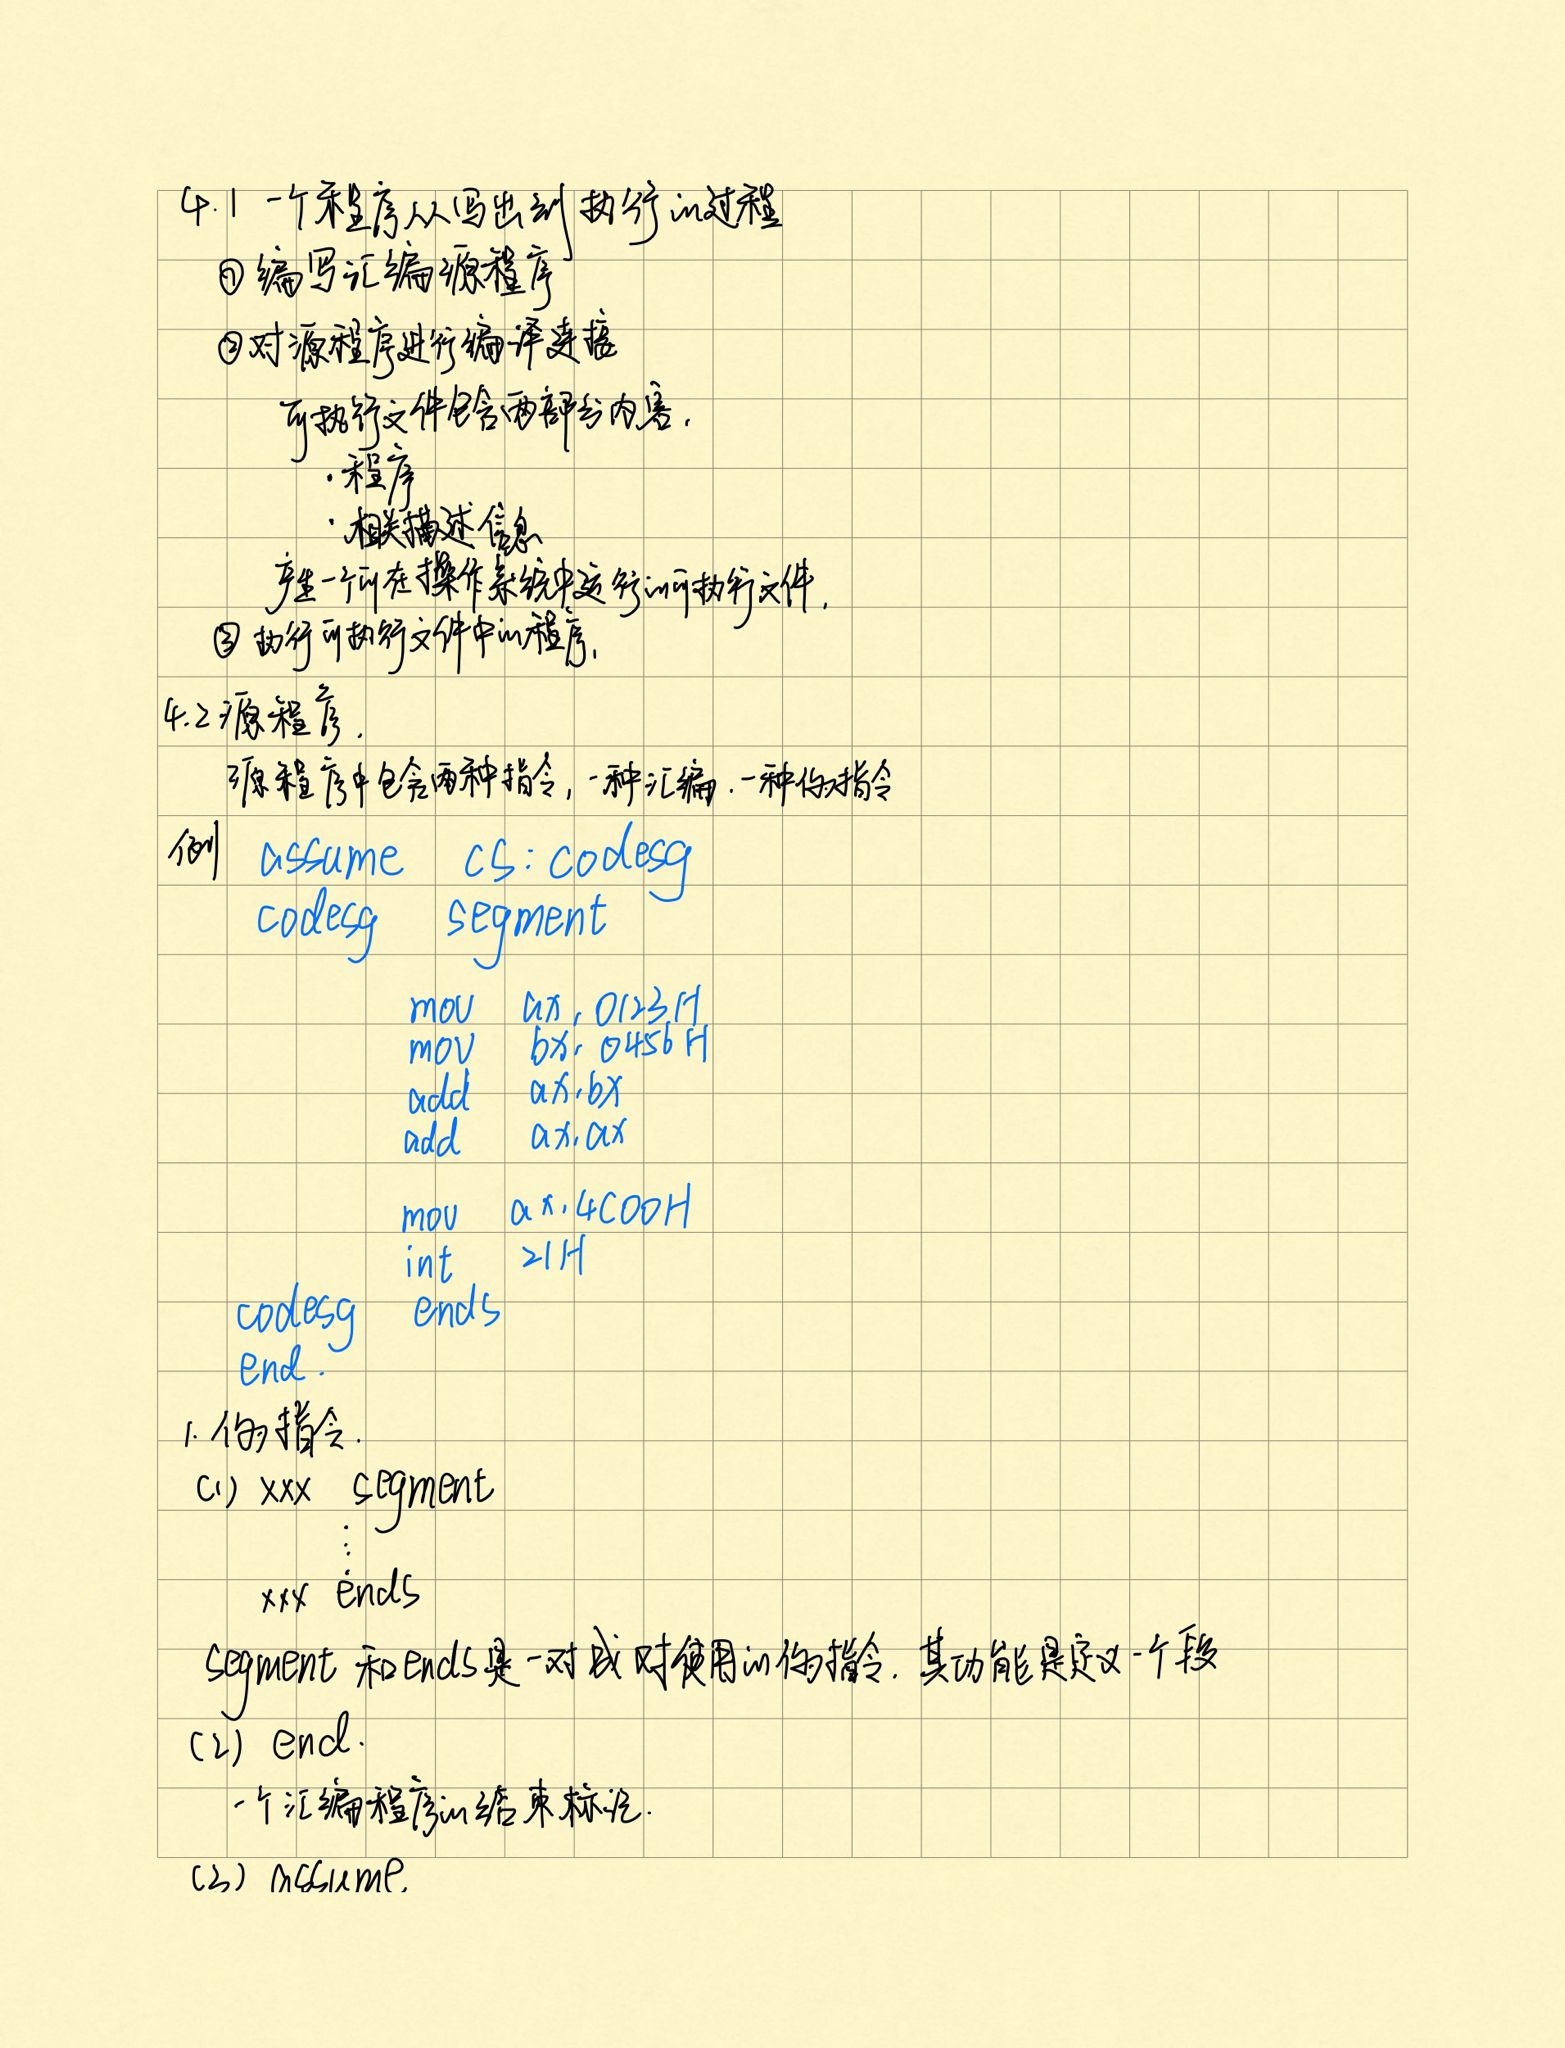 4.1 一个程序从写出到执行的过程
① 编写汇编源程序
② 对源程序进行编译连接
可执行文件包含两部分内容.
· 程序
· 相关描述信息
产生一个可在操作系统中运行的可执行文件.
③ 执行可执行文件中的程序.
4.2 源程序.
源程序中包含两种指令, 一种汇编. 一种伪指令
例 assume cs:codesg
codesg segment
mov ax, 0123H
mov bx, 0456H
add ax, bx
add ax, ax
mov ax, 4C00H
int 21H
codesg ends
end.
1. 伪指令.
(1) xxx segment
⋮
xxx ends
segment 和ends是一对成对使用的伪指令. 其功能是定义一个段
(2) end.
一个汇编程序的结束标记.
(3) assume.